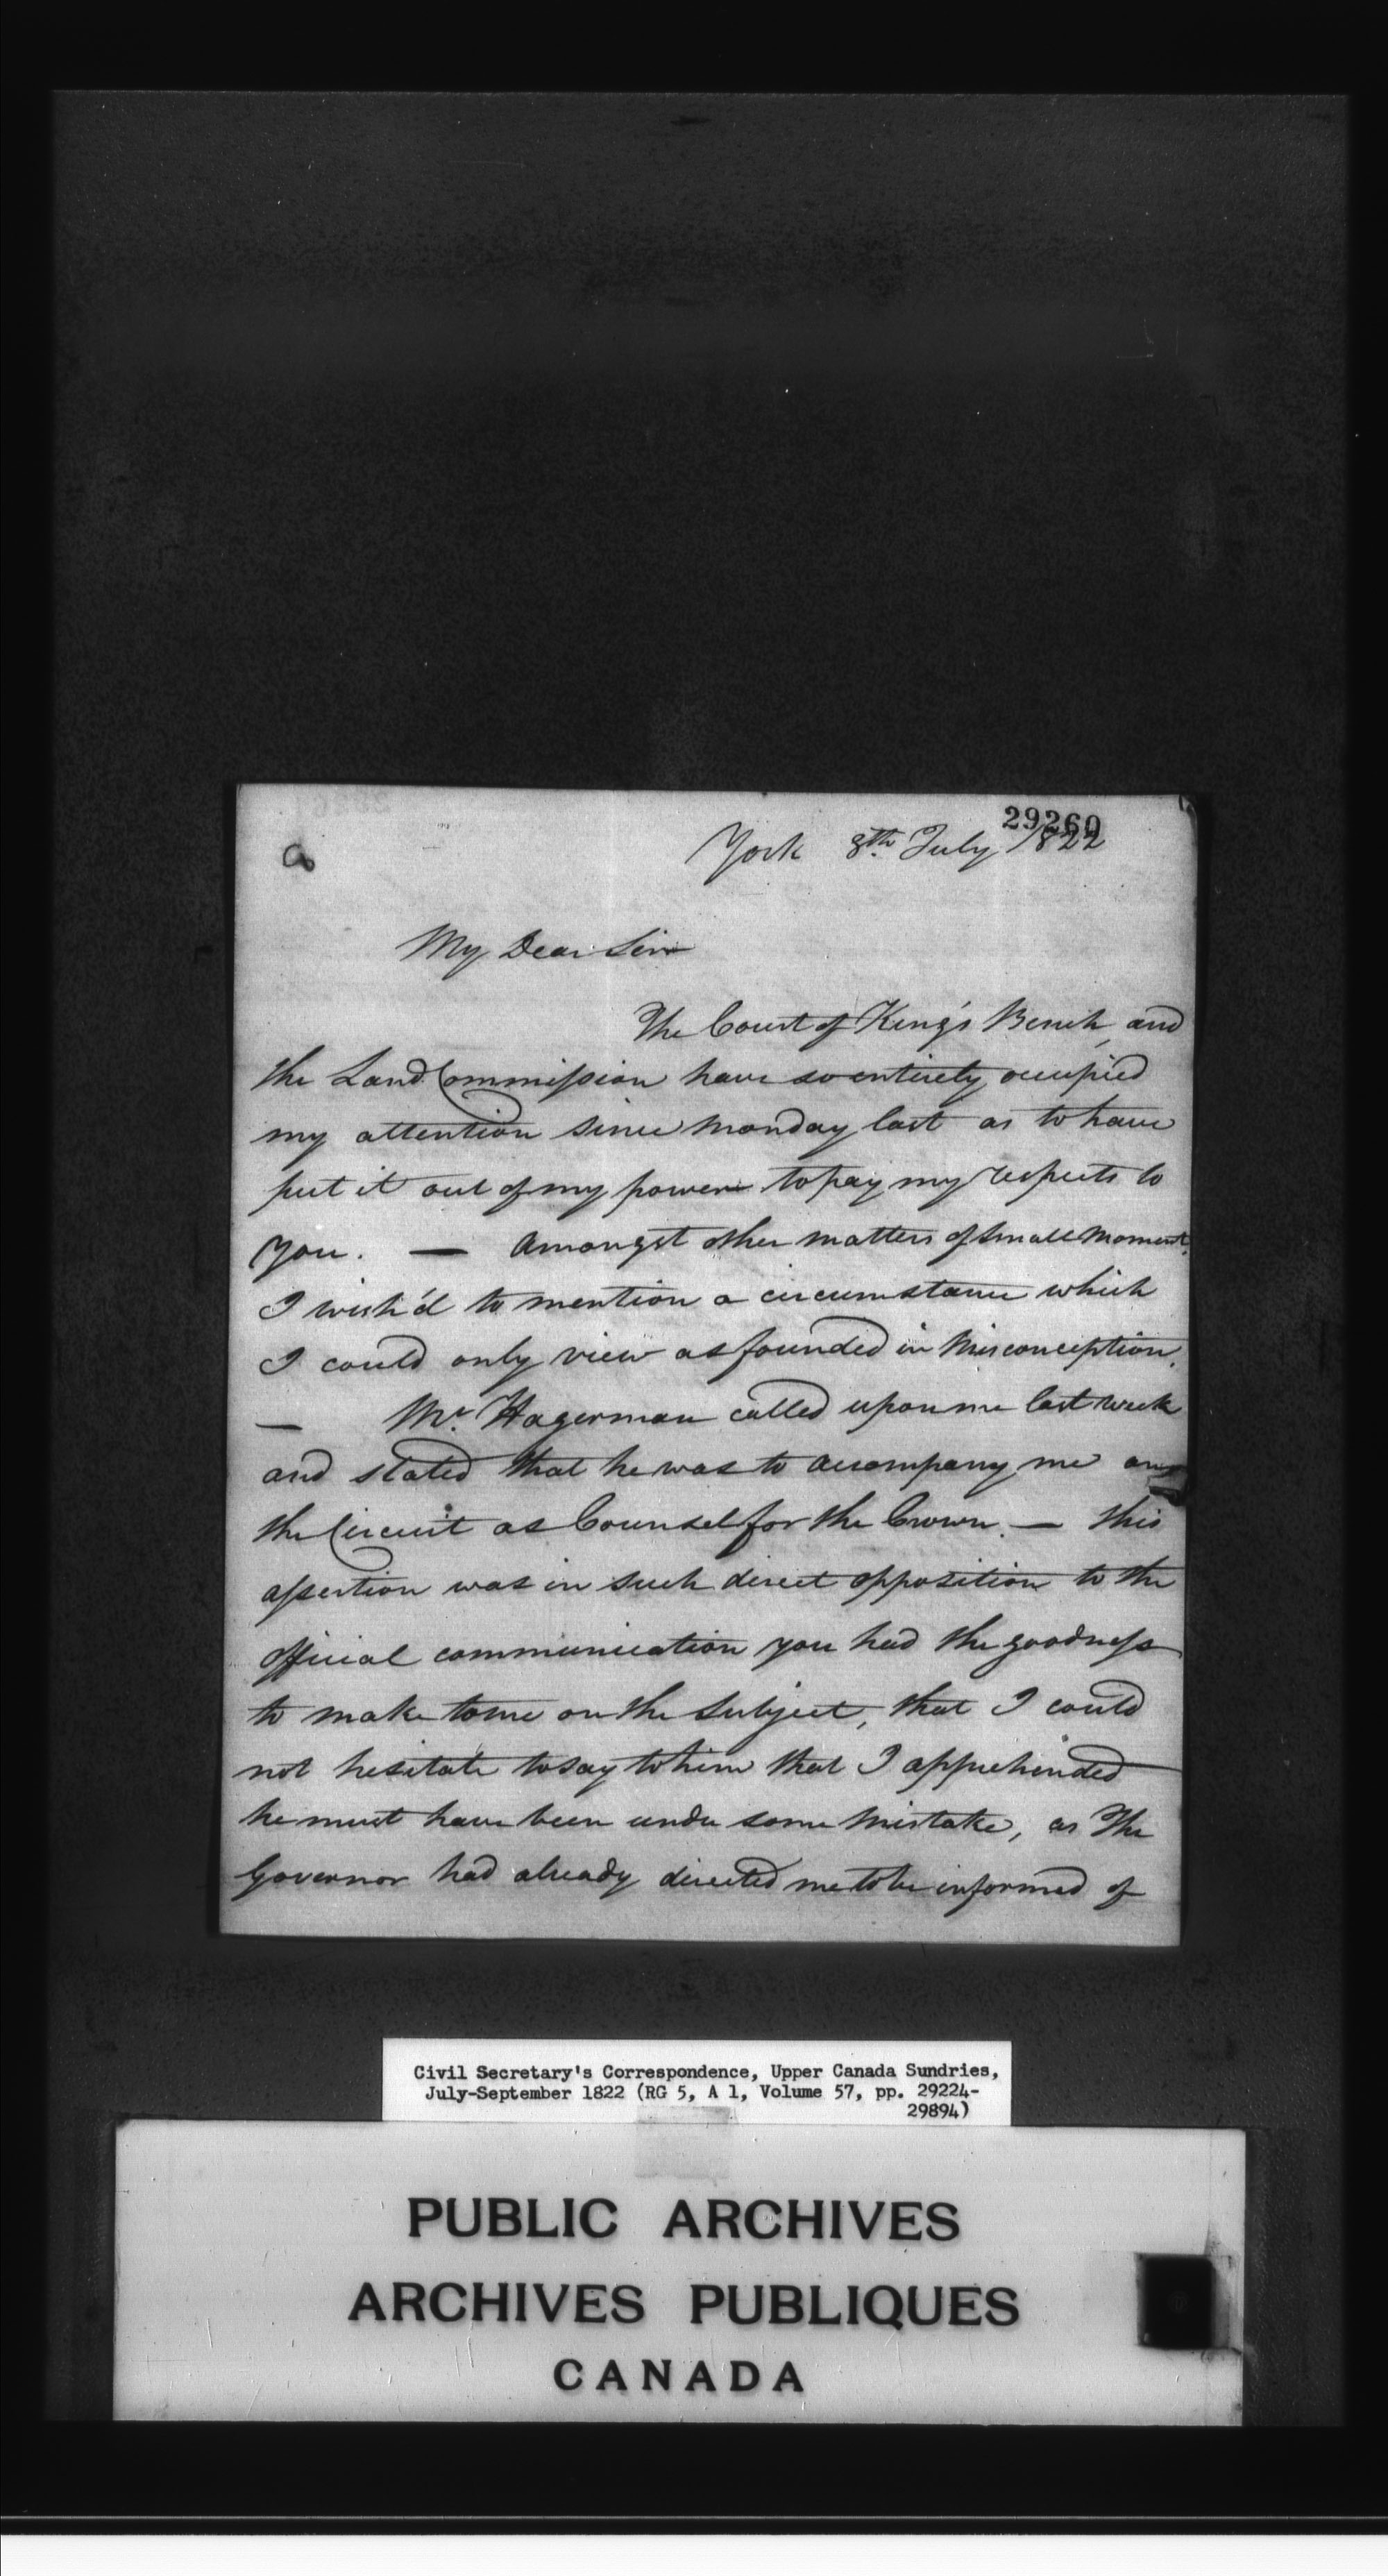 29260
York 8th July 1822
My Dear Sir
The Court of King's Bench, and
the Land Commission have so entirely occupied
my attention since Monday last as to have
put it out of my power to pay my respects to
you. — Amongst other matters of small moment,
I wish'd to mention a circumstance which
I could only view as founded in misconception.
— Mr. Hagerman called upon me last week
and stated that he was to accompany me on
the Circuit as Counsel for the Crown. — this
assertion was in such direct opposition to the
official communication you had the goodness
to make to me on the subject, that I could
not hesitate to say to him that I apprehended
he must have been under some mistake, as The
Governor had already directed me to be informed of
Civil Secretary's Correspondence, Upper Canada Sundries,
July-September 1822 (RG 5, A 1, Volume 57, pp. 29224-
29894)
PUBLIC ARCHIVES
ARCHIVES PUBLIQUES
CANADA